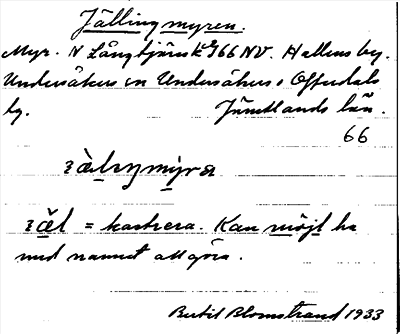 Jällingmyren.
Myr. N Långtjärn k 966 NV. Hallens by.
Undersåkers sn Undersåkers o Offerdals
tg. Jämtlands län.
66
ɜàlıŋmýra
ɜä̀l = kastrera. Kan möjl ha
med namnet att göra.
Bertil Blomstrand 1933